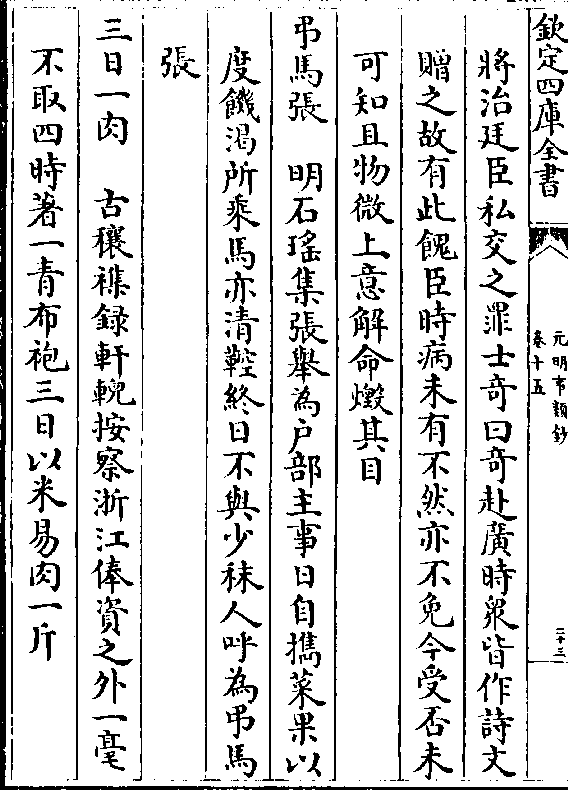 欽定四庫全書
元明事類鈔
卷十五
二十三
將治廷臣私交之罪士奇曰奇赴廣時衆皆作詩文
贈之故有此餽臣時病未有不然亦不免今受否未
可知且物微上意解命燬其目
弔馬張　明石瑤集張舉為户部主事日自擕菜果以
度饑渴所乘馬亦清鞚終日不與少秣人呼為弔馬
張
三日一肉　古穰襍録軒輗按察浙江俸資之外一毫
不取四時著一青布袍三日以米易肉一斤